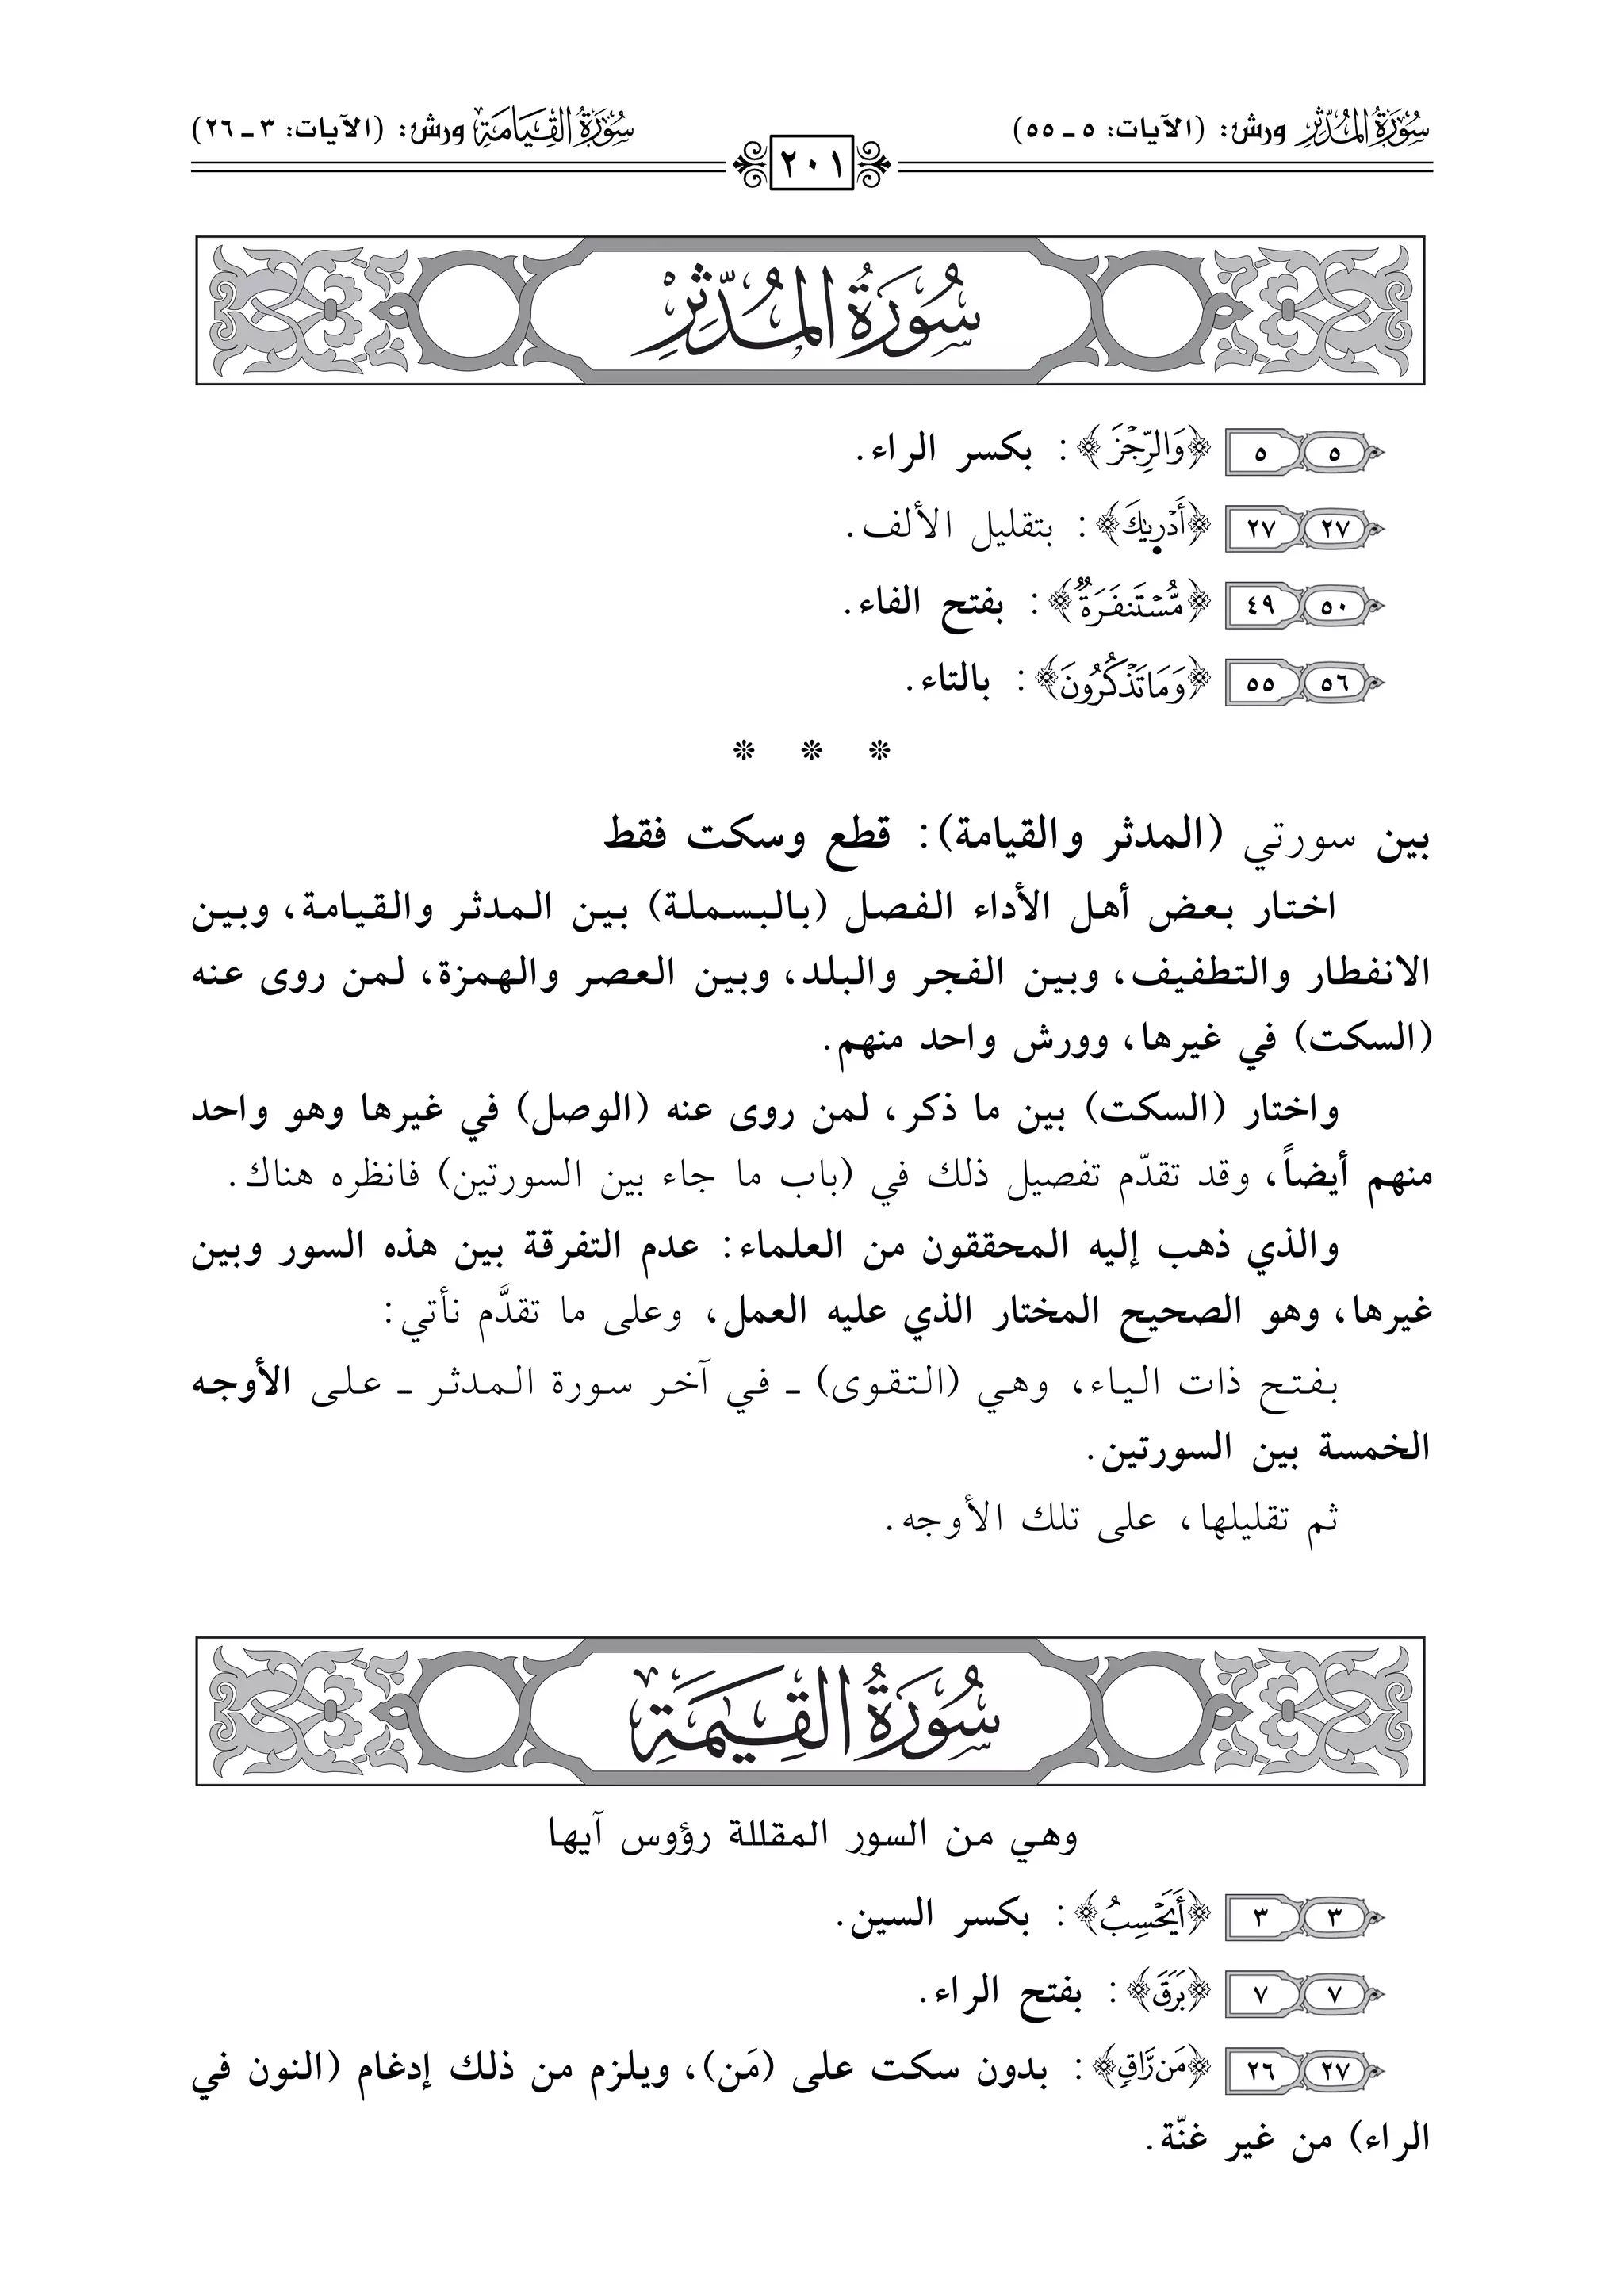 سُورَةُ المُدَّثِّرِ ورش: (الآيات: ٥ ـ ٥٥)
سُورَةُ القِيَامَةِ ورش: (الآيات: ٣ ـ ٢٦)
٢٠١
سُورَةُ المُدَّثِّرِ
٥ ٥ ﴿وَالرِّجْزَ﴾: بكسر الراء.
٢٧ ٢٧ ﴿أَدْرِىٰكَ﴾: بتقليل الألف.
٥٠ ٤٩ ﴿مُّسْتَنفَرَةٌ﴾: بفتح الفاء.
٥٦ ٥٥ ﴿وَمَا تَذْكُرُونَ﴾: بالتاء.
* * *
بين سورتي (المدثر والقيامة): قطع وسكت فقط
اختار بعض أهل الأداء الفصل (بالبسملة) بين المدثر والقيامة، وبين
الانفطار والتطفيف، وبين الفجر والبلد، وبين العصر والهمزة، لمن روى عنه
(السكت) في غيرها، وورش واحد منهم.
واختار (السكت) بين ما ذكر، لمن روى عنه (الوصل) في غيرها وهو واحد
منهم أيضاً، وقد تقدّم تفصيل ذلك في (باب ما جاء بين السورتين) فانظره هناك.
والذي ذهب إليه المحققون من العلماء: عدم التفرقة بين هذه السور وبين
غيرها، وهو الصحيح المختار الذي عليه العمل، وعلى ما تقدَّم نأتي:
بفتح ذات الياء، وهي (التقوى) ـ في آخر سورة المدثر ـ على الأوجه
الخمسة بين السورتين.
ثم تقليلها، على تلك الأوجه.
سُورَةُ القِيَٰمَةِ
وهي من السور المقللة رؤوس آيها
٣ ٣ ﴿أَيَحْسِبُ﴾: بكسر السين.
٧ ٧ ﴿بَرَقَ﴾: بفتح الراء.
٢٧ ٢٦ ﴿مَن رَّاقٍ﴾: بدون سكت على (مَن)، ويلزم من ذلك إدغام (النون في
الراء) من غير غنّة.